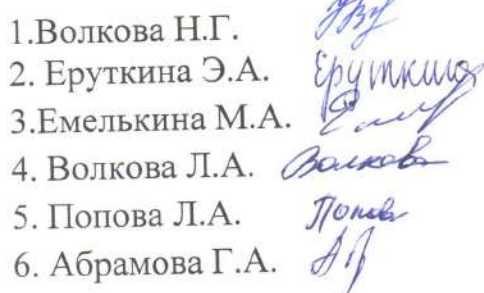 1.Волкова Н.Г.
2. Еруткина Э.А. Еруткина
3.Емелькина М.А.
4. Волкова Л.А. Волкова
5. Попова Л.А. Попова
6. Абрамова Г.А.